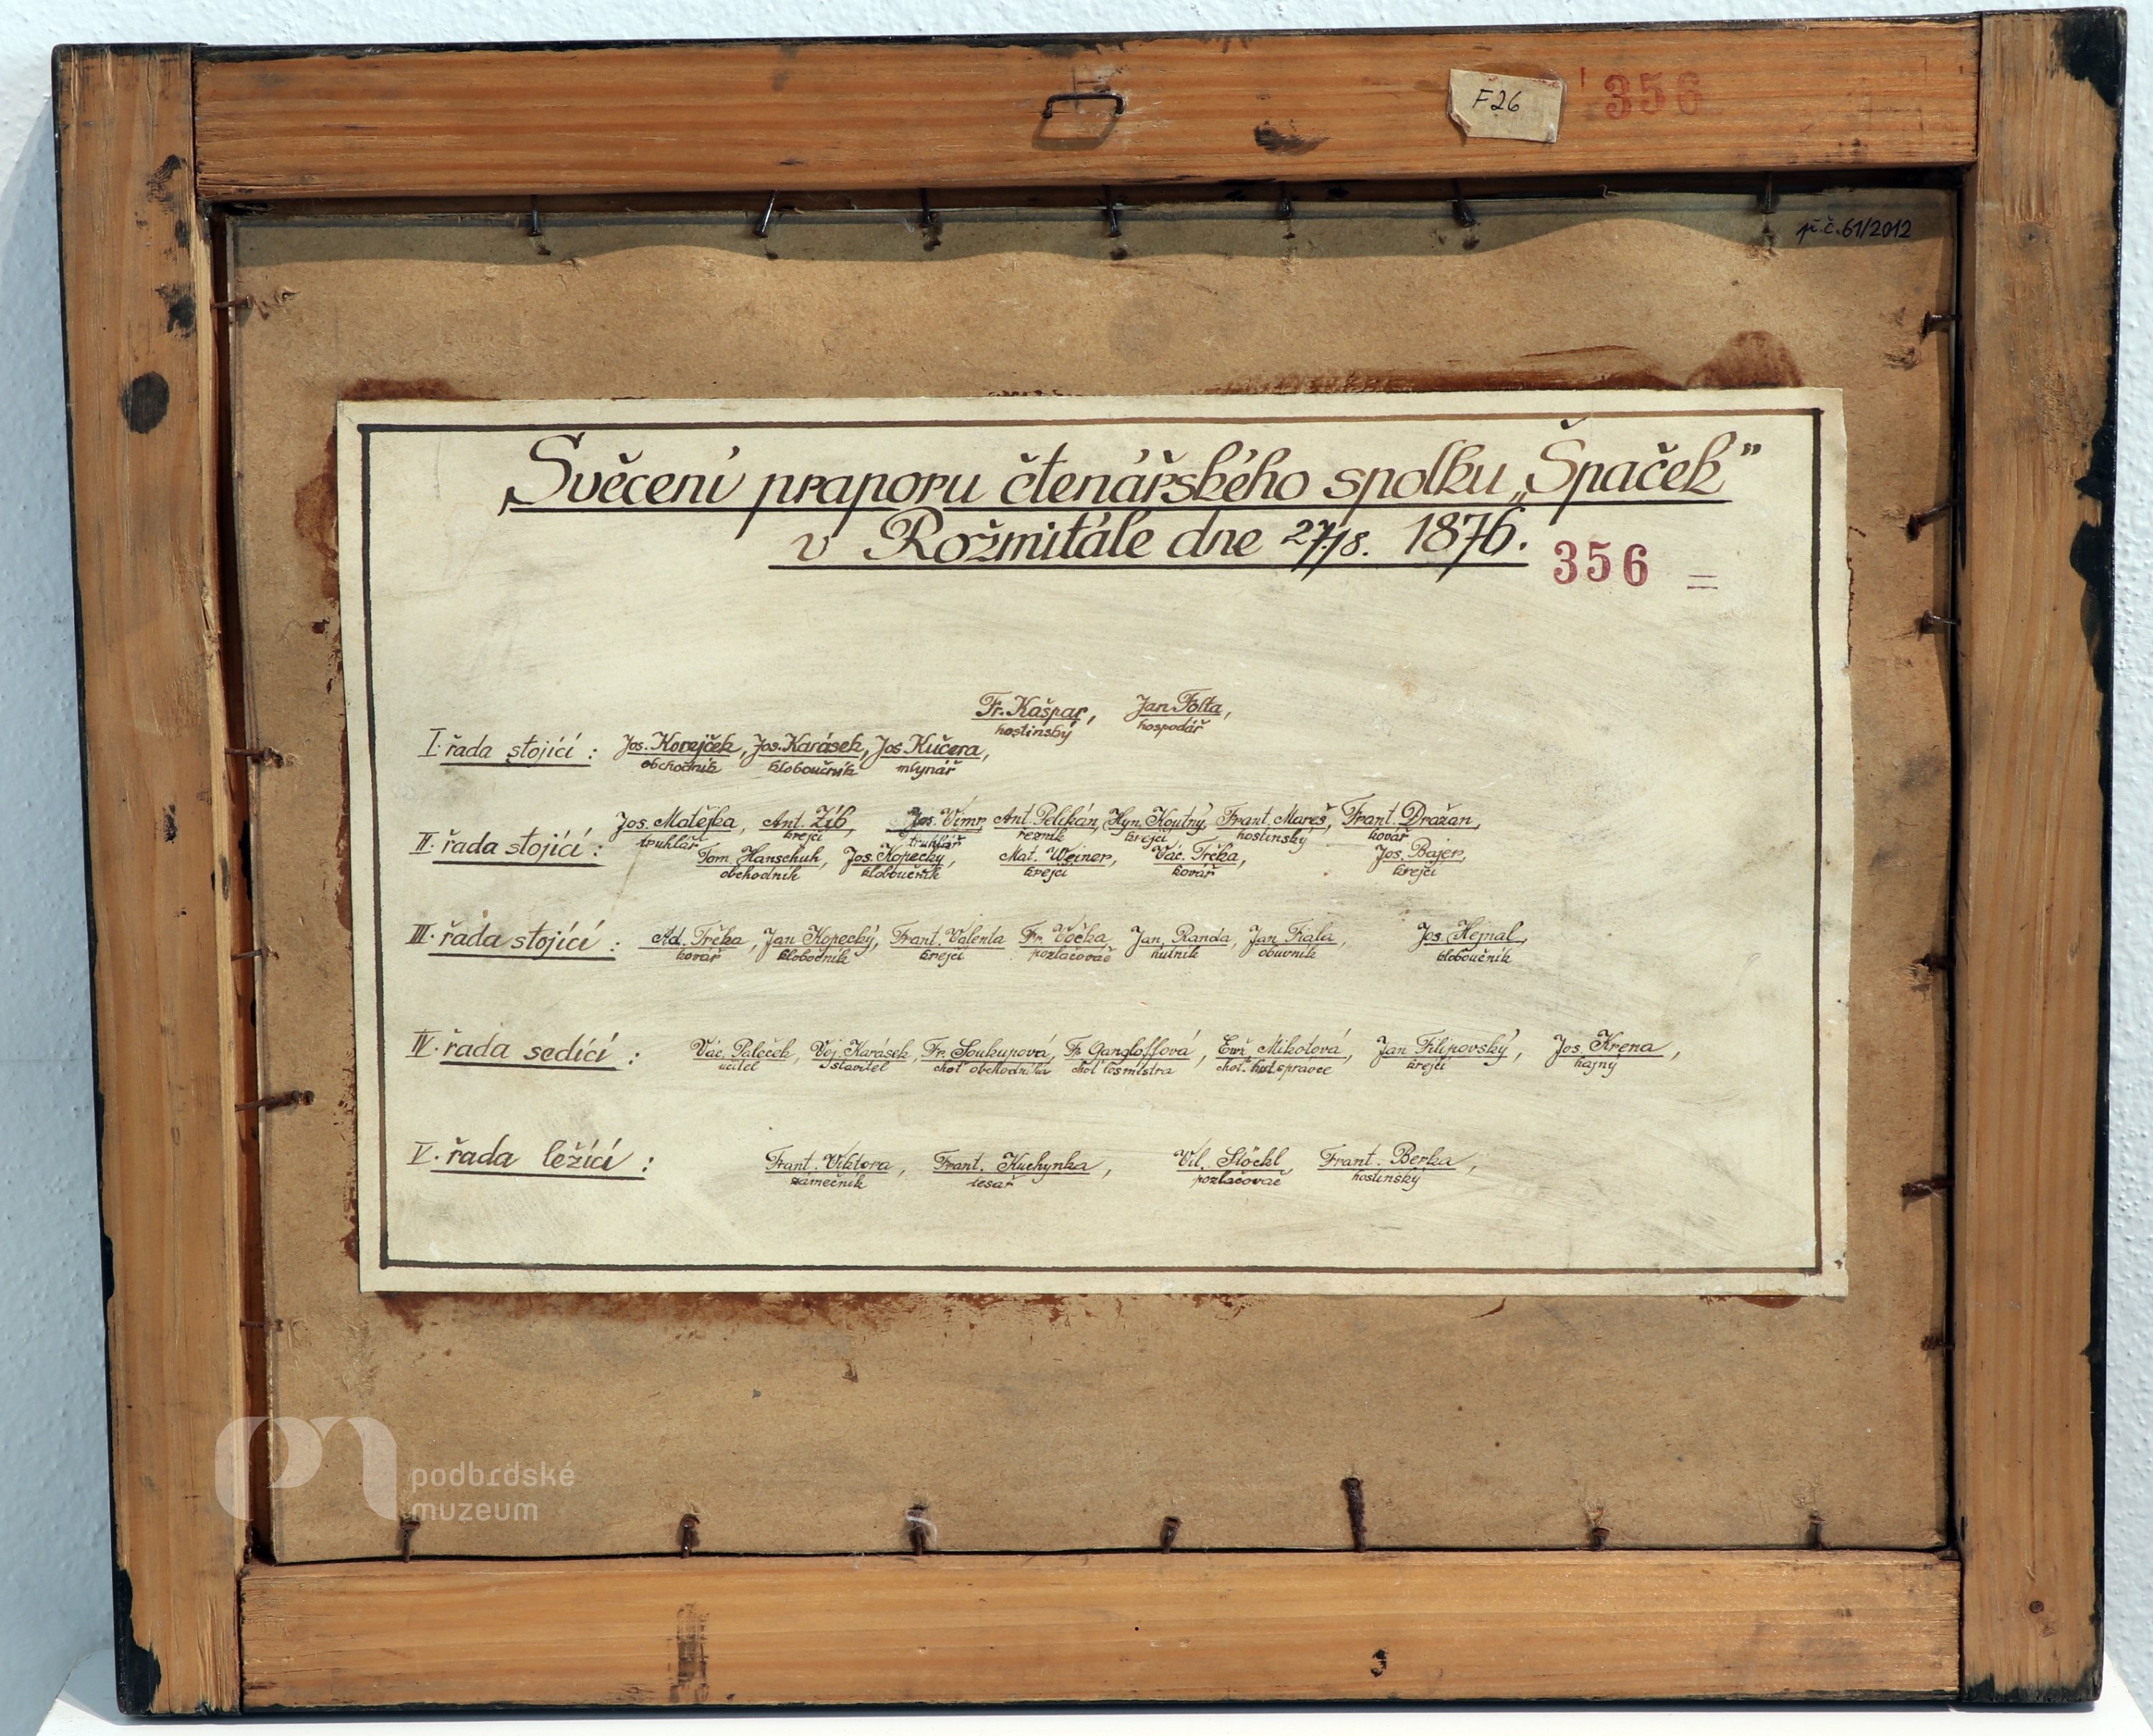 F26
356
př.č. 61/2012
„Svěcení praporu čtenářského spolku „Špaček"
v Rožmitále dne 27./8. 1876.
356 =
Fr. Kašpar, Jan Folta,
hostinský hospodář
I. řada stojící : Jos. Korejček, Jos. Karásek, Jos. Kučera,
obchodník kloboučník mlynář
Jos. Matějka, Ant. Žib, Jos. Vimr, Ant. Pelikán, Hyn. Koutný, Frant. Mareš, Frant. Dražan,
truhlář krejčí truhlář řezník krejčí hostinský kovář
II. řada stojící : Tom. Hanschuh, Jos. Kopecký, Mat. Weiner, Vác. Trčka, Jos. Bajer,
obchodník kloboučník krejčí kovář krejčí
III. řada stojící : Ad. Trčka, Jan Kopecký, Frant. Valenta Fr. Vočka, Jan Randa, Jan Fiala, Jos. Hejnal,
kovář klobočník krejčí pozlačovač hutník obuvník kloboučník
IV. řada sedící : Vác. Paleček, Voj. Karásek, Fr. Soukupová, Fr. Gangloffová, Emž. Mikotová, Jan Filipovský, Jos. Křena,
učitel stavitel choť obchodníka choť lesmistra choť. správce krejčí hajný
V. řada ležící : Frant. Viktora, Frant. Kuchynka, Vil. Stöckl, Frant. Berka,
zámečník tesař pozlačovač hostinský
podbrdské
muzeum